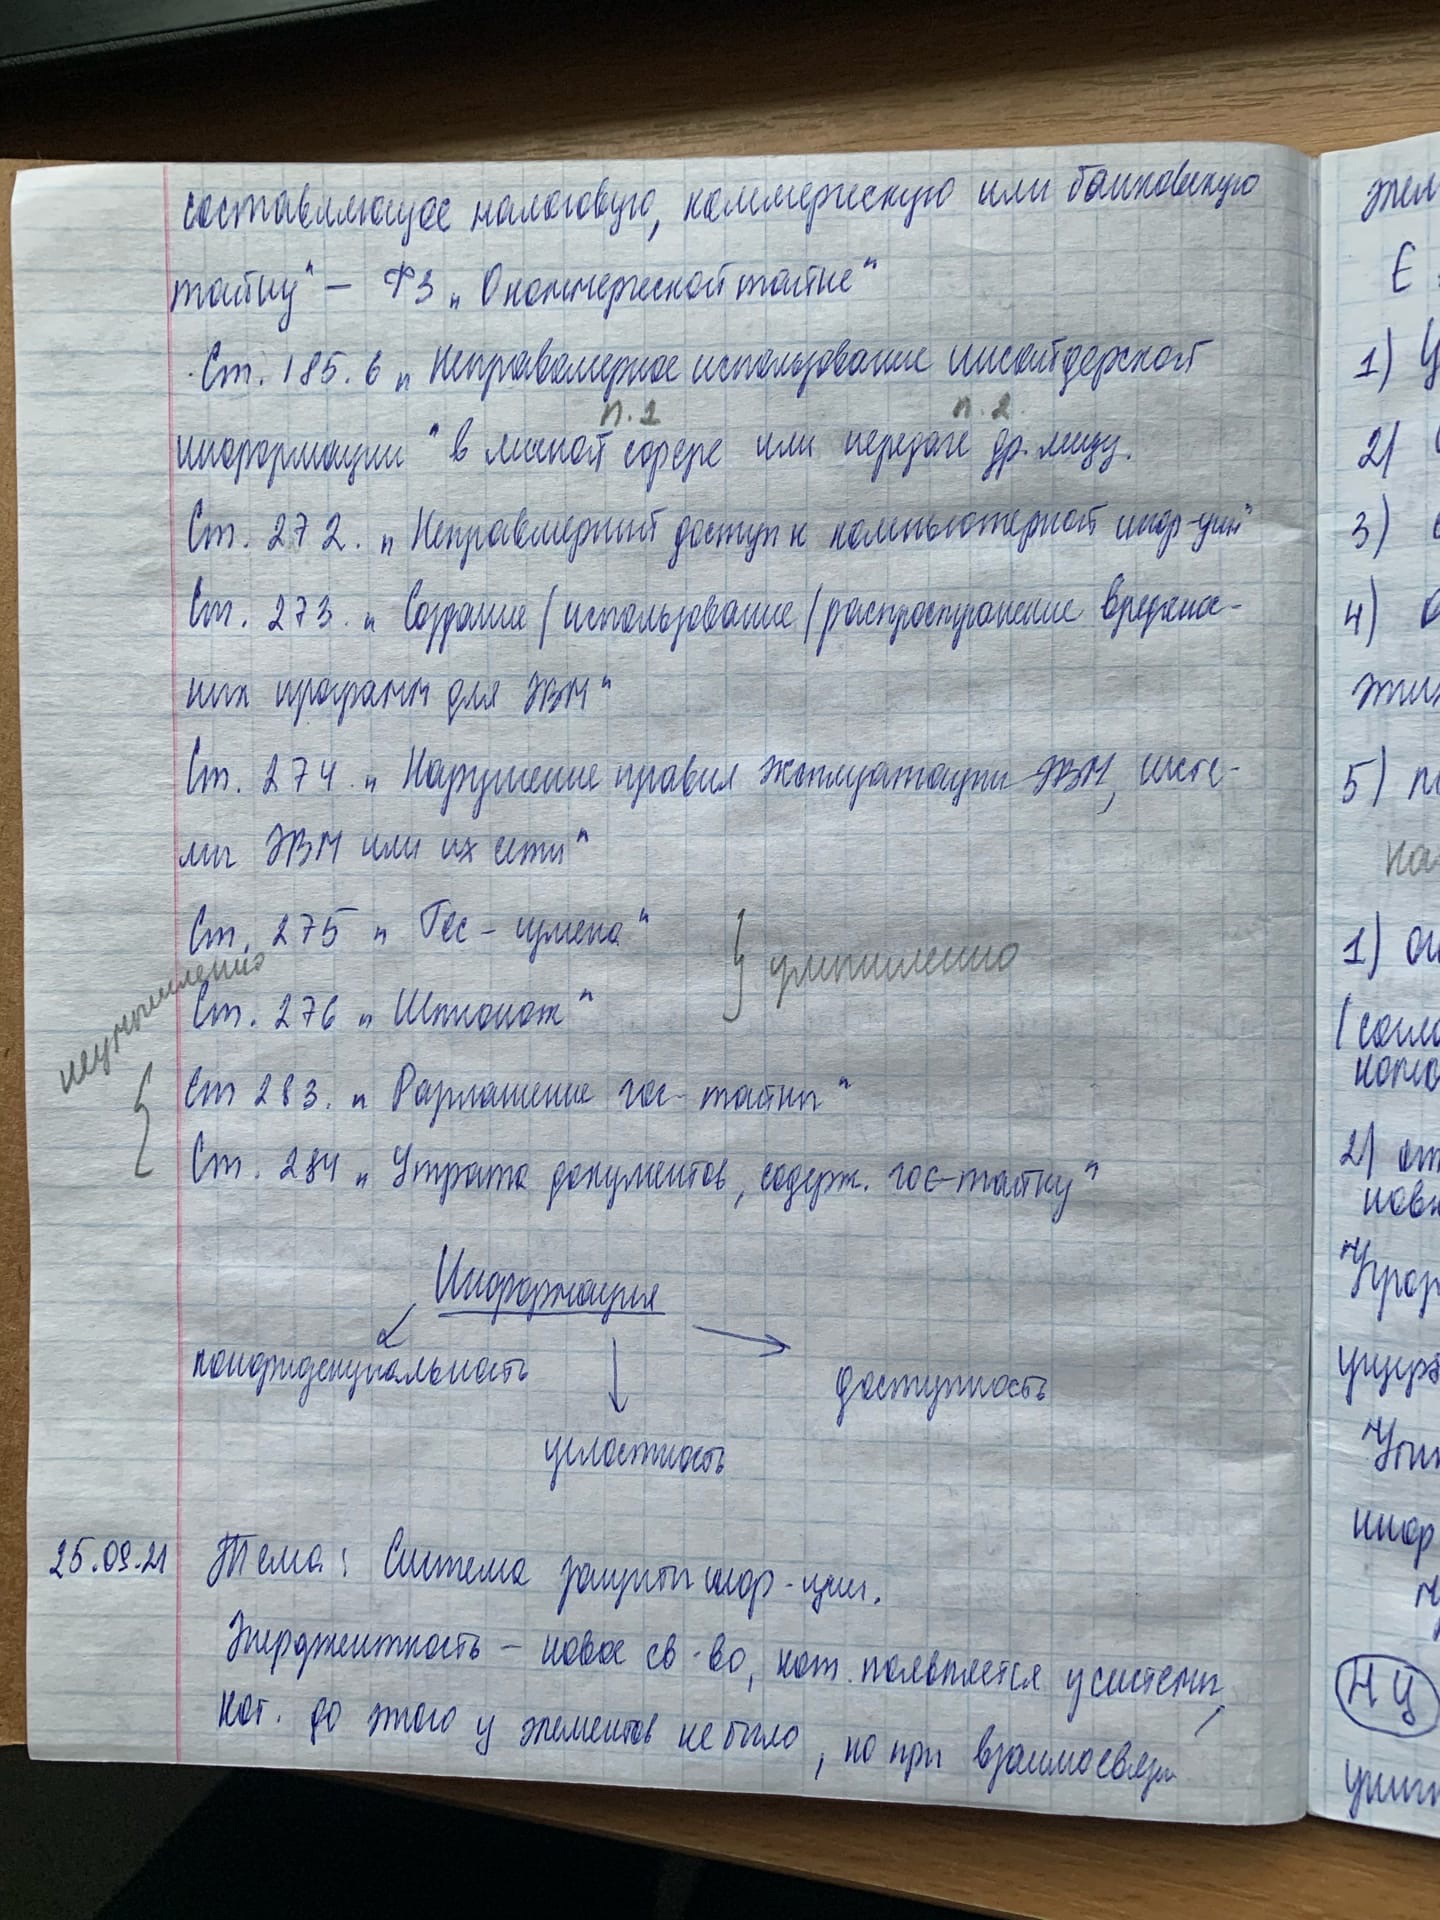 составляющее налоговую, коммерческую или банковскую
тайну" – ФЗ „О коммерческой тайне"
Ст. 185.6 „Неправомерное использование инсайдерской
п.1 п.2.
информации" в личной сфере или передаче др. лицу.
Ст. 272. „Неправмерный доступ к компьютерной инф-ции"
Ст. 273. „Создание/использование/распространение вредонос-
ных программ для ЭВМ"
Ст. 274. „Нарушение правил эксплуатации ЭВМ, систе-
мы ЭВМ или их сети"
Ст. 275 „Гос-измена"
умышленно
неумышленно
Ст. 276 „Шпионаж"
Ст 283. „Разглашение гос-тайны"
Ст. 284 „Утрата документов, содерж. гос-тайну"
Информация
конфиденциальность
доступность
целостность
25.09.21 Тема: Система защиты инф-ции.
Эмерджентность – новое св-во, кот. появляется у системы,
кот. до этого у элементов не было, но при взаимосвязи
жем
Е
1)
2)
3)
4)
5) п
1)
2) от
НЦ